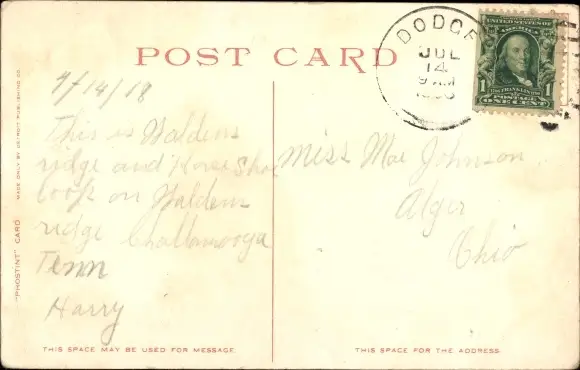 POST CARD
DODGE
JUL
14
9 AM
UNITED STATES OF
AMERICA
1 1
POSTAGE
ONE CENT
"PHOSTINT" CARD
MADE ONLY BY DETROIT PUBLISHING CO.
This is Waldens
ridge and Horse Shoe
loop on Waldens
ridge Challanooga
Tenn
Harry
Miss Mae Johnson
Alger
Ohio
THIS SPACE MAY BE USED FOR MESSAGE.
THIS SPACE FOR THE ADDRESS.